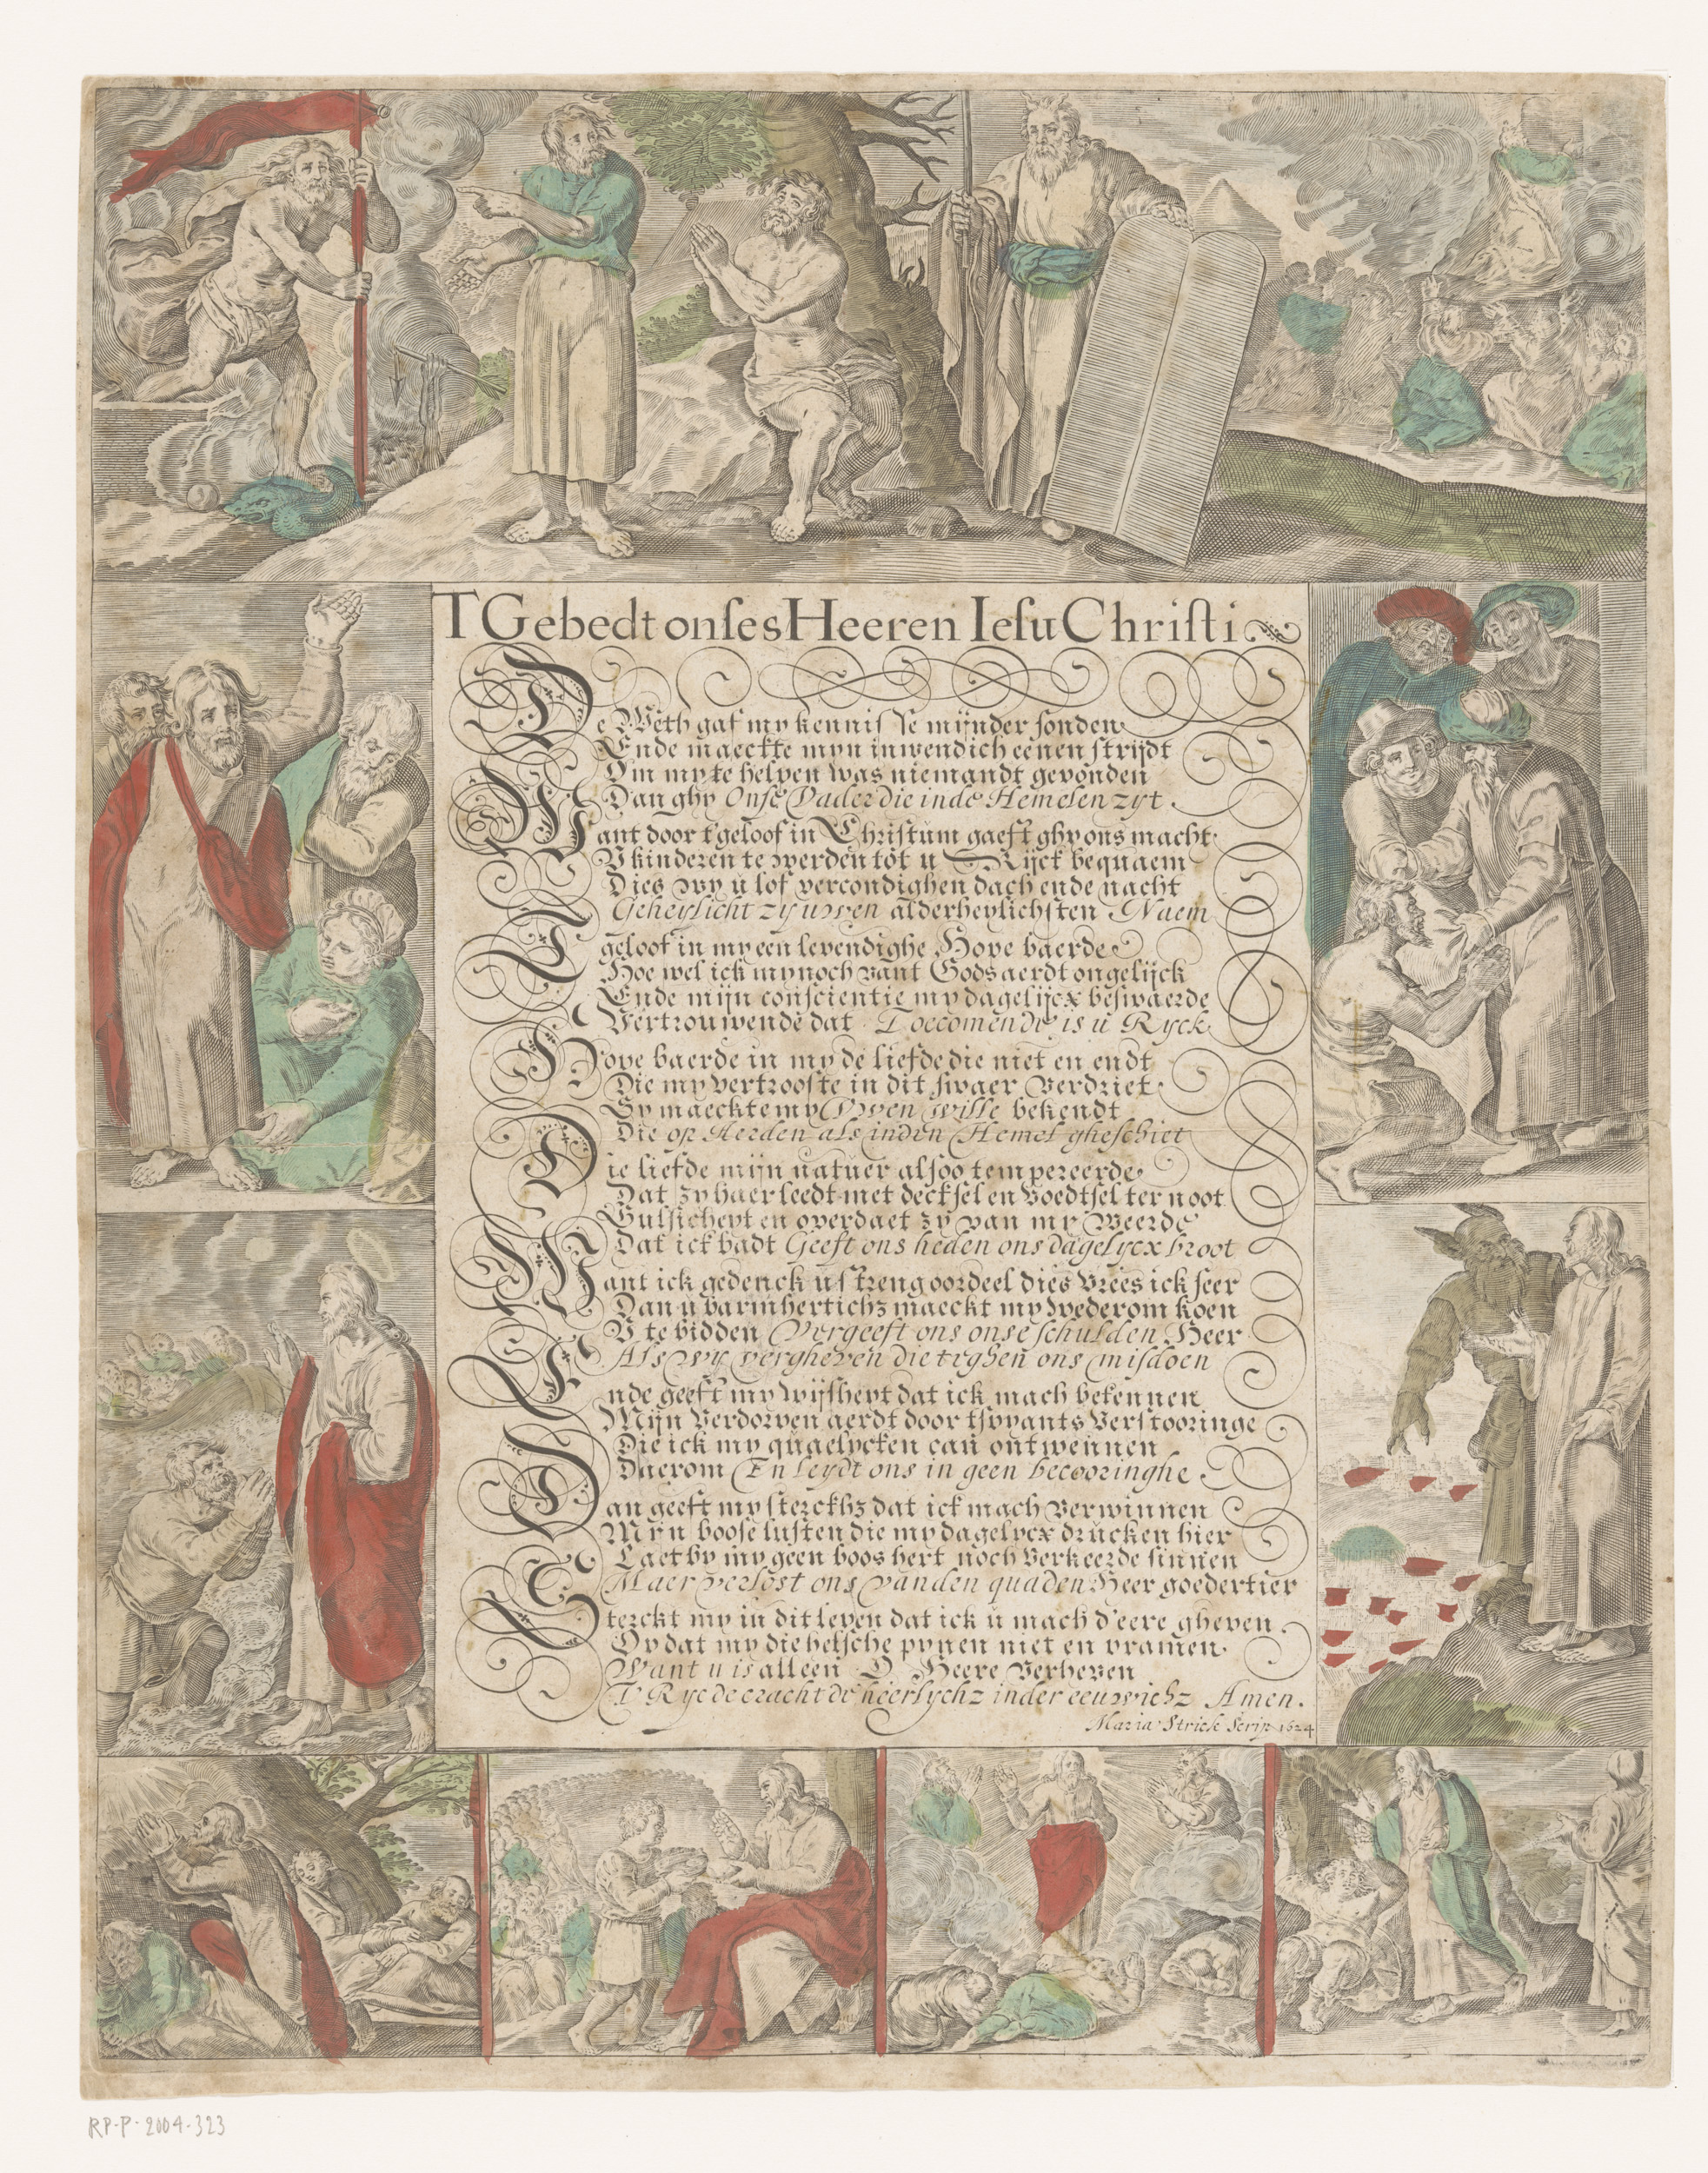 TGebedt onses Heeren Iesu Christi
De Weth gaf my kennisse mynder sonden
Ende maeckte myn inwendich eenen strydt
Om my te helpen was niemandt gevonden
Dan ghy Onse Vader die inde Hemelen zyt.
Want door t'geloof in Christum gaeft ghy ons macht
V kinderen te werden tot u Ryck bequaem
Dies wy u lof vercondighen dach ende nacht
Geheylicht zy uwen alderheylichsten Naem
T geloof in my een levendighe Hope baerde
Hoe wel ick my noch vant Gods aerdt ongelyck
Ende mijn conscientie my dagelijcx beswaerde
Vertrouwende dat Toecomende is u Ryck
Hope baerde in my de liefde die niet en endt
Die my vertrooste in dit swaer verdriet
Sy maeckte my Vwen wille bekendt
Die op Aerden als inden Hemel gheschiet
Die liefde mijn natuer alsoo tempereerde
Dat zy haer leedt met decksel en voedtsel ter noot
Gulsicheyt en overdaet zy van my weerde
Dat ick badt Geeft ons heden ons dagelycx broot
Want ick gedenck u streng oordeel dies vrees ick seer
Dan u barmhertich3 maeckt my wederom koen
V te bidden Vergeeft ons onse schulden Heer
Als wy vergheven die tyghen ons misdoen
Ende geeft my wijsheyt dat ick mach bekennen
Mijn verdorven aerdt door tsvyants verstooringe
Die ick my qualycken can ontwennen
Daerom En leydt ons in geen becooringhe
Dan geeft my sterckh3 dat ick mach verwinnen
Mijn boose lusten die my dagelycx drucken hier
Laet by my geen boos hert noch verkeerde sinnen
Maer verlost ons vanden quaden Heer goedertier
Sterckt my in dit leven dat ick u mach d'eere gheven
Op dat my die helsche pynen niet en pramen
Want u is alleen O Heere verheven
T Ryc de cracht de heerlych3 inder eeuwich3 Amen.
Maria Strick Scrip 1624
RP-P-2004-323